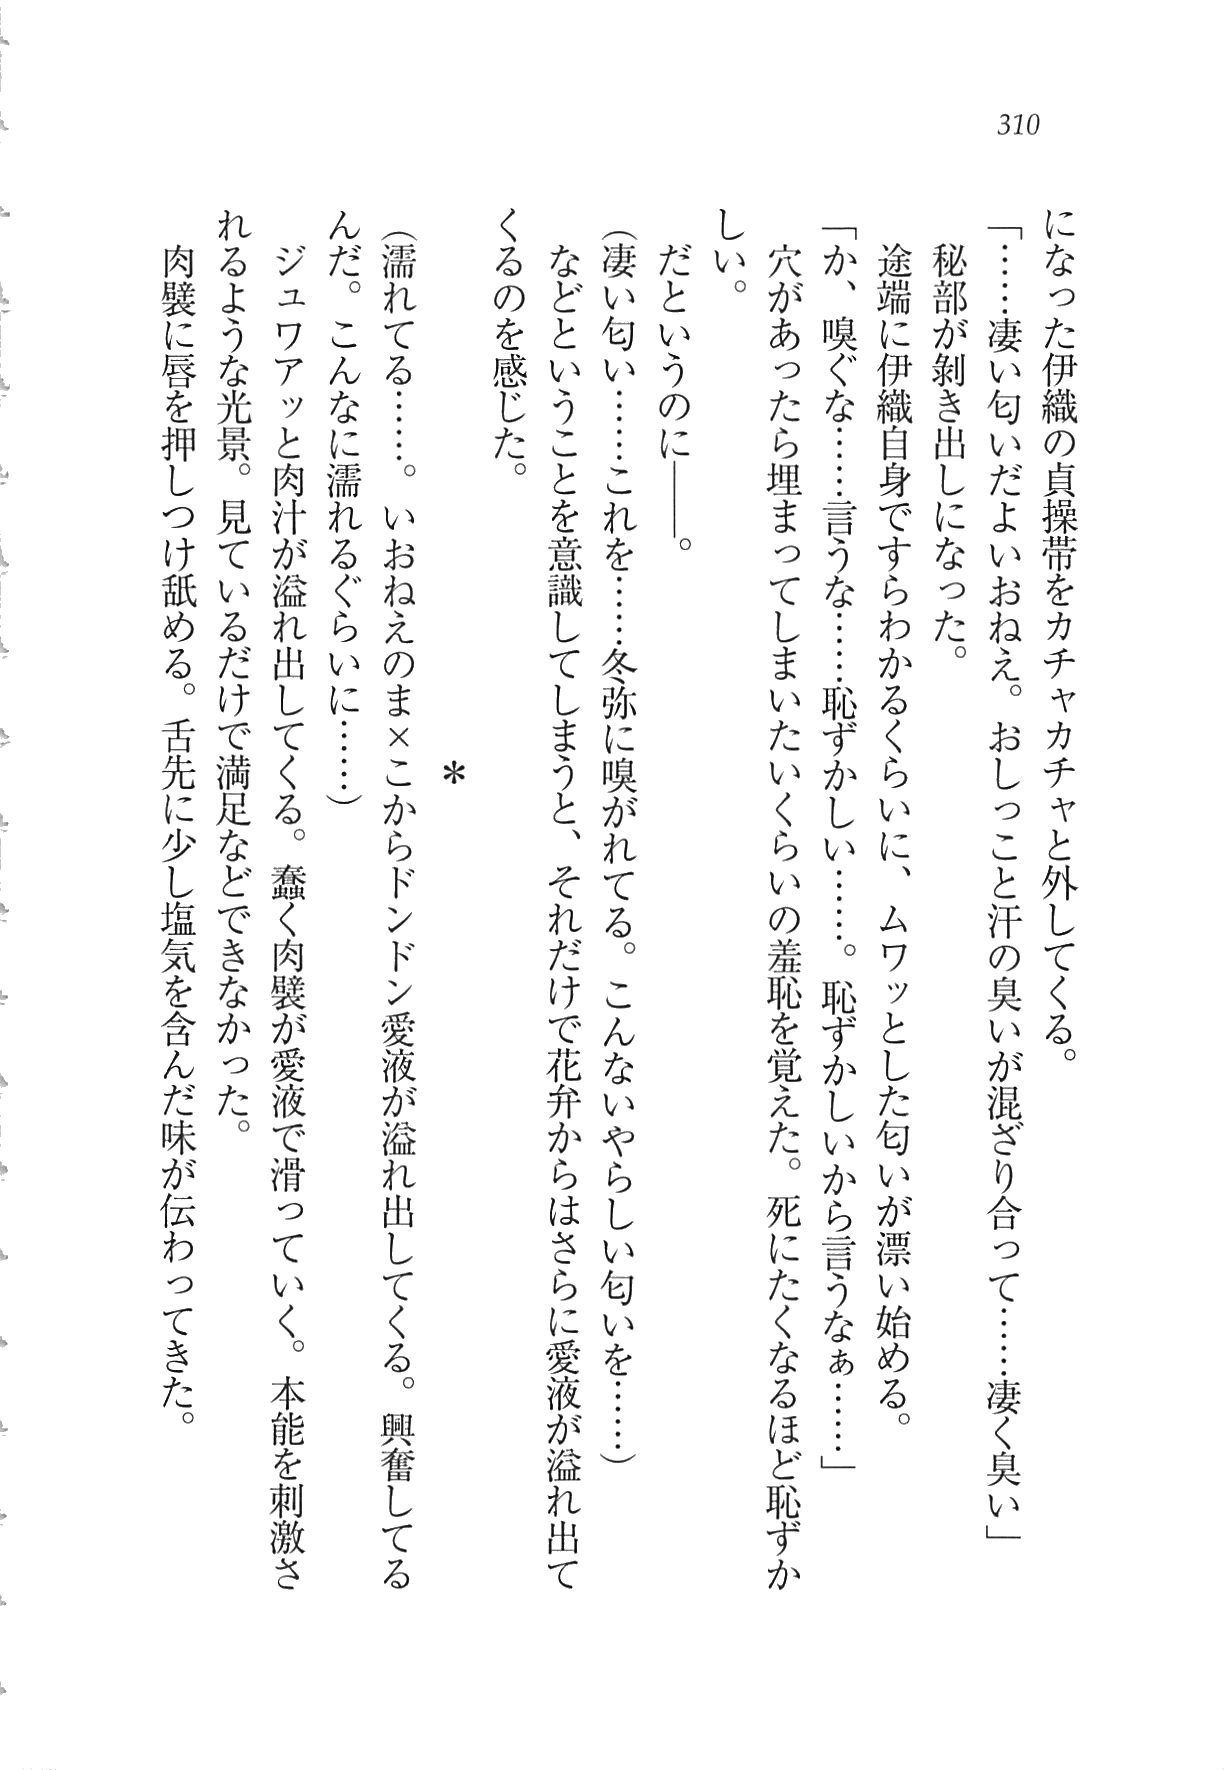 310
になった伊織の貞操帯をカチャカチャと外してくる。
「……凄い匂いだよいおねえ。おしっこと汗の臭いが混ざり合って……凄く臭い」
秘部が剝き出しになった。
途端に伊織自身ですらわかるくらいに、ムワッとした匂いが漂い始める。
「か、嗅ぐな……言うな……恥ずかしい……。恥ずかしいから言うなぁ……」
穴があったら埋まってしまいたいくらいの羞恥を覚えた。死にたくなるほど恥ずか
しい。
だというのに――。
（凄い匂い……これを……冬弥に嗅がれてる。こんないやらしい匂いを……）
などということを意識してしまうと、それだけで花弁からはさらに愛液が溢れ出て
くるのを感じた。
＊
（濡れてる……。いおねえのま×こからドンドン愛液が溢れ出してくる。興奮してる
んだ。こんなに濡れるぐらいに……）
ジュワアッと肉汁が溢れ出してくる。蠢く肉襞が愛液で滑っていく。本能を刺激さ
れるような光景。見ているだけで満足などできなかった。
肉襞に唇を押しつけ舐める。舌先に少し塩気を含んだ味が伝わってきた。